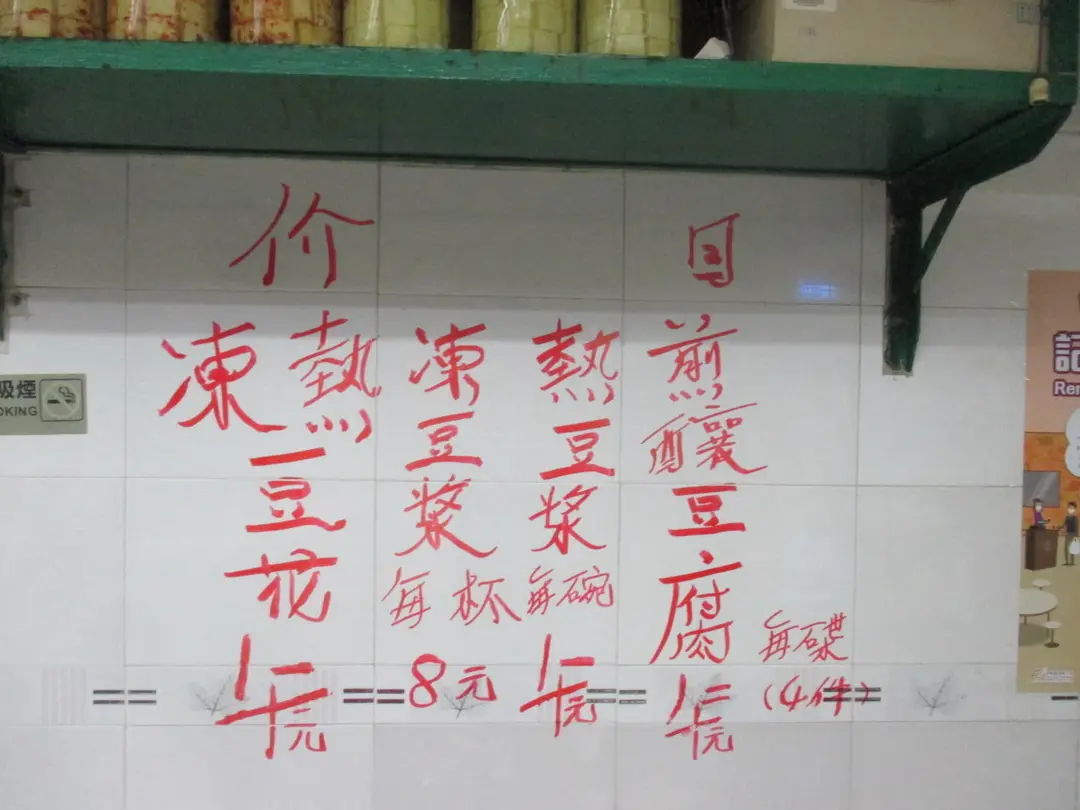 价目
煎釀豆腐
元
每碟
(4件)
熱豆漿
每碗
元
凍豆漿
每杯
8元
凍熱豆花
元
吸煙
OKING
記
Rem